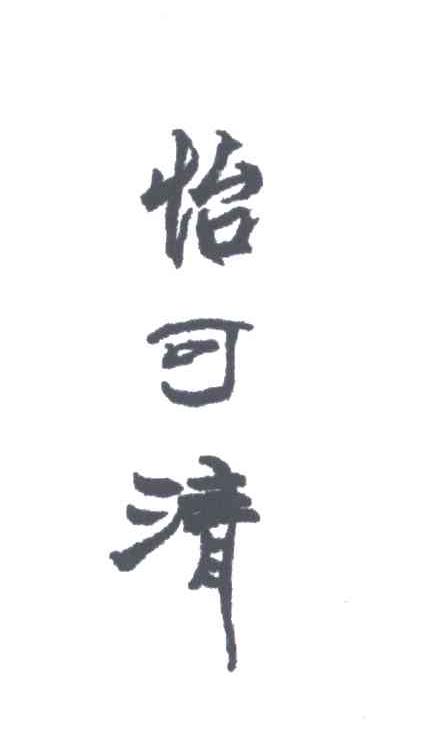 怡可清